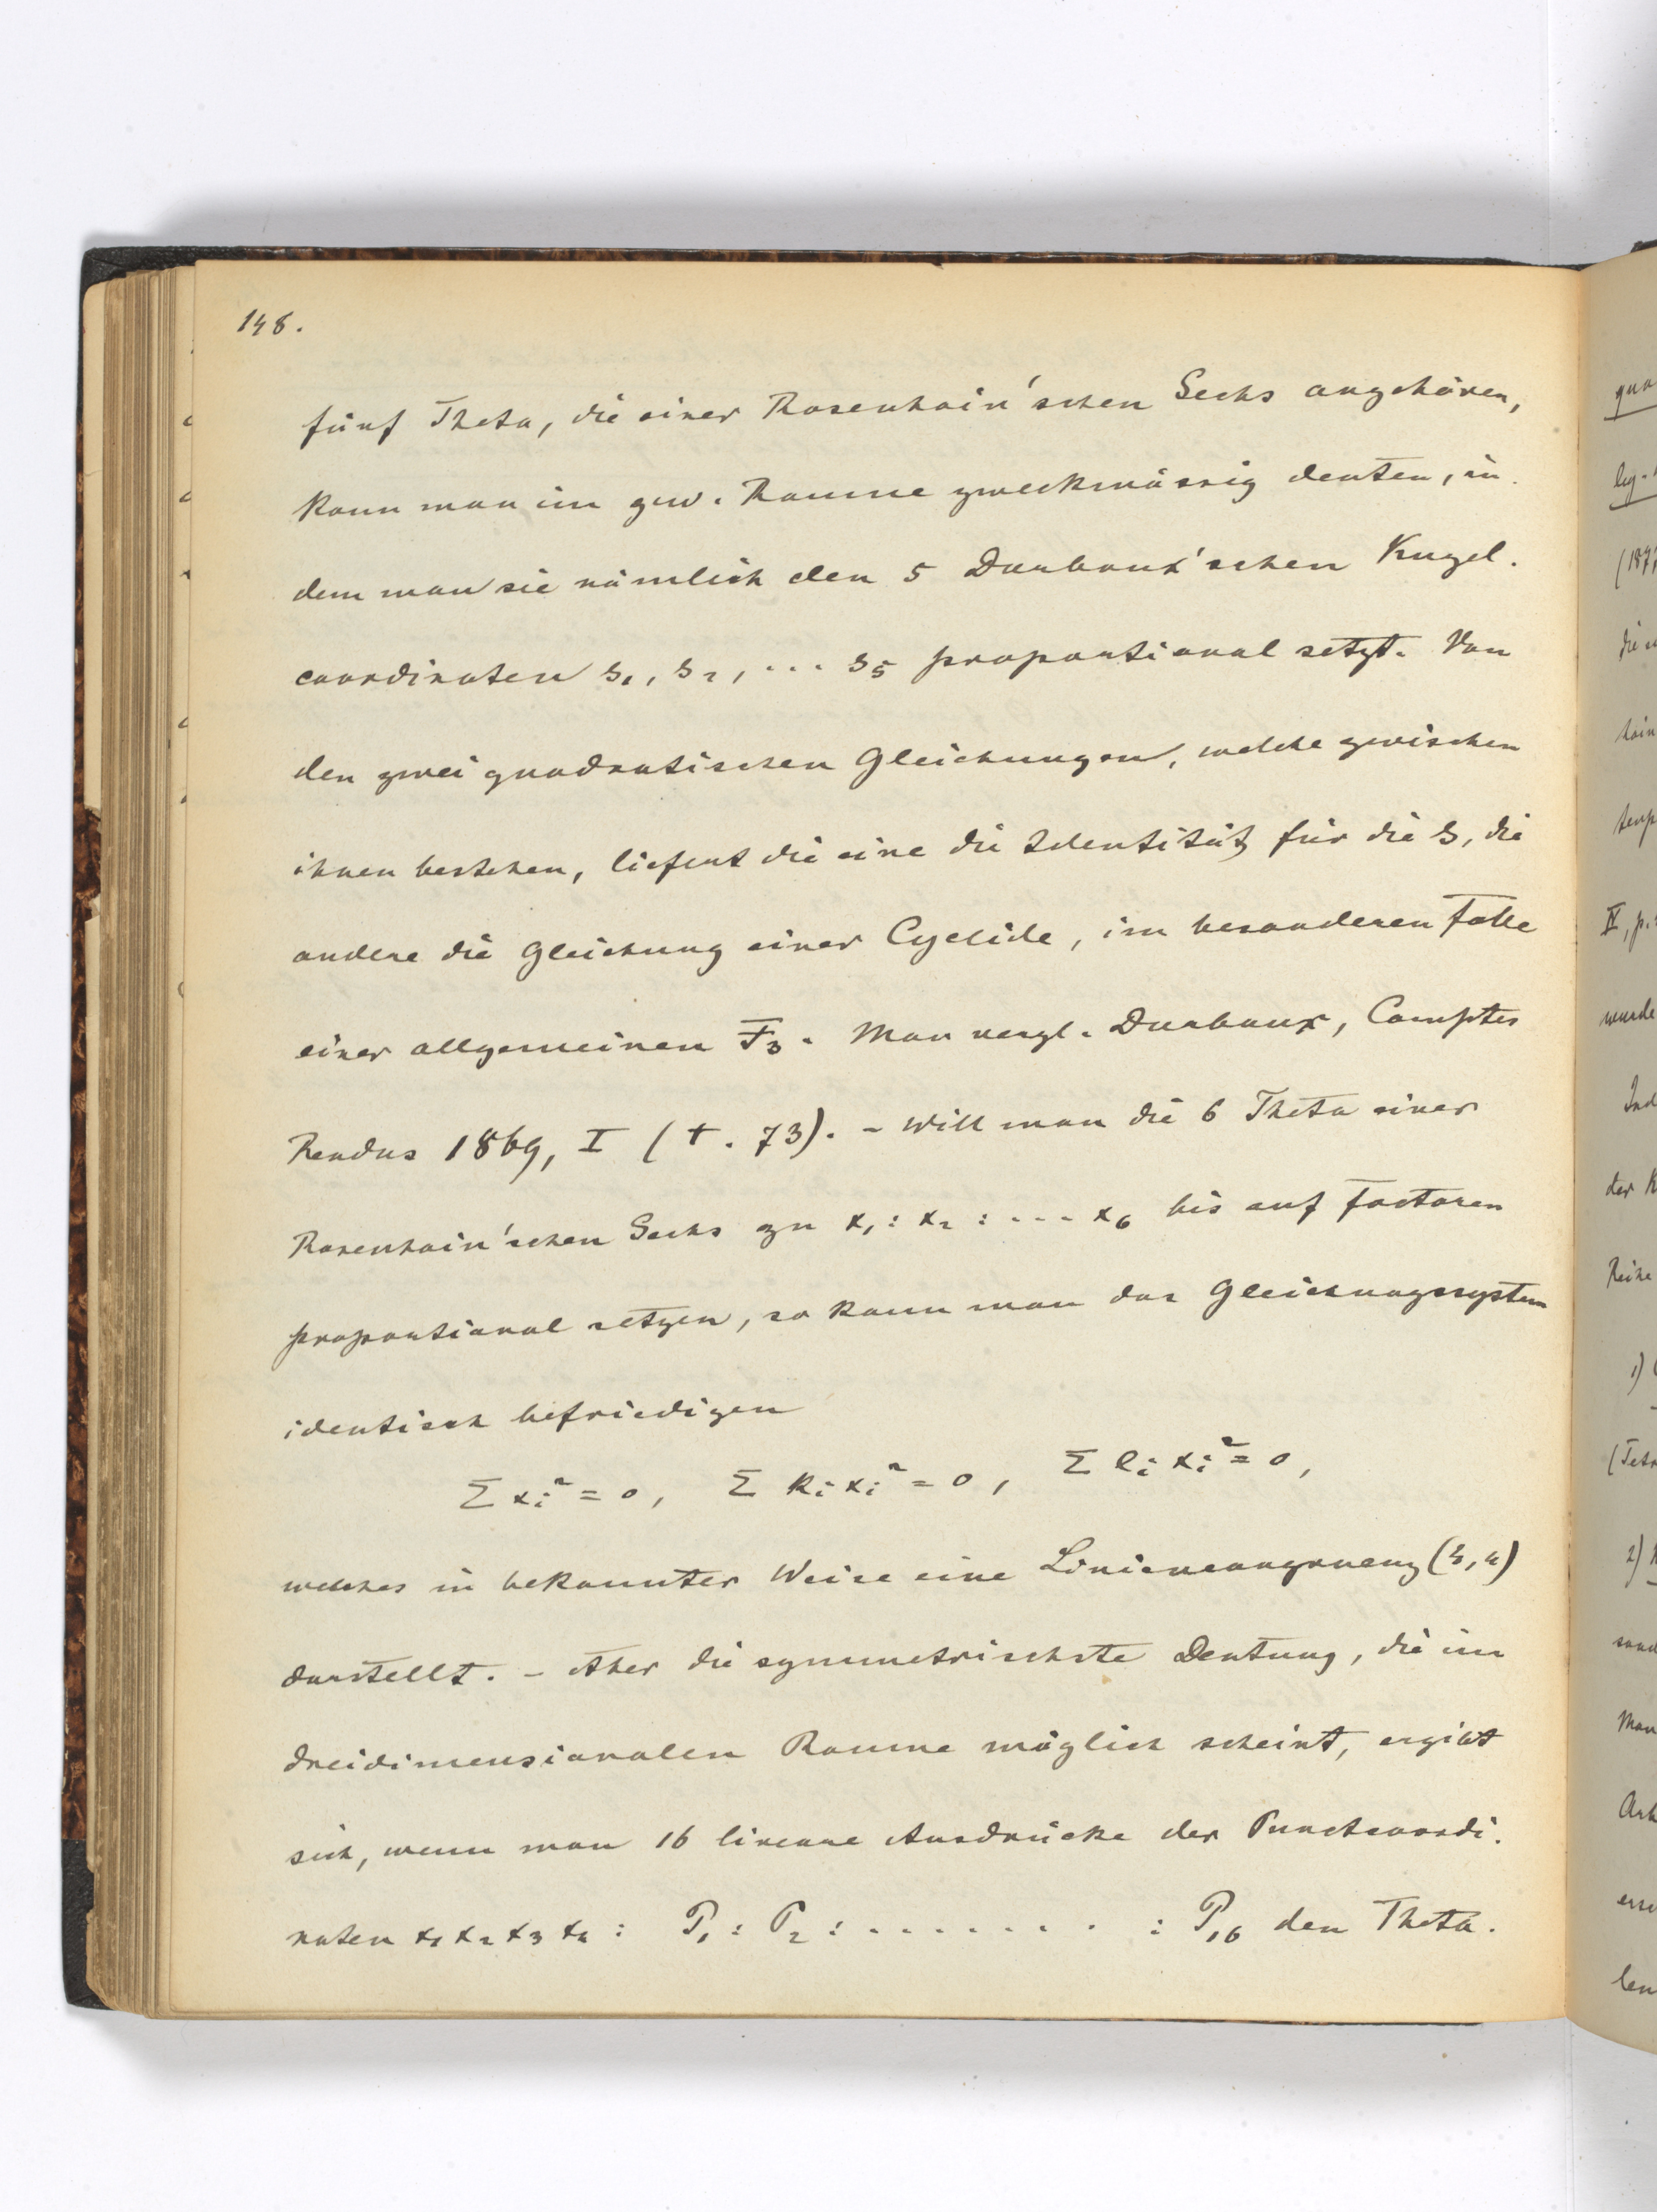 148.
fünf Theta, die einer Rosenhain'schen Sechs angehören,
kann man im gew. Raume zweckmässig deuten, in.
dem man sie nämlich den 5 Darboux'schen Kugel.
coordinaten s₁, s₂, ... s₅ proportional setzt. Von
den zwei quadratischen Gleichungen, welche zwischen
ihnen bestehen, liefert die eine die Identität für die s, die
andere die Gleichung einer Cyclide, im besonderen Falle
einer allgemeinen F₃. Man vergl. Darboux, Comptes
Rendus 1869, I (t. 73). - Will man die 6 Theta einer
Rosenhain'schen Sechs zu x₁ : x₂ : ... x₆ bis auf Factoren
proportional setzen, so kann man das Gleichungssystem
identisch befriedigen
Σ xᵢ² = 0, Σ kᵢ xᵢ² = 0, Σ lᵢ xᵢ² = 0,
welches in bekannter Weise eine Liniencongruenz (4,4)
darstellt. - Aber die symmetrischste Deutung, die im
dreidimensionalen Raume möglich scheint, ergibt
sich, wenn man 16 lineare Ausdrücke der Punctcoordi.
naten x₁ x₂ x₃ x₄ : P₁ : P₂ : . . . . . . . . : P₁₆ den Theta.